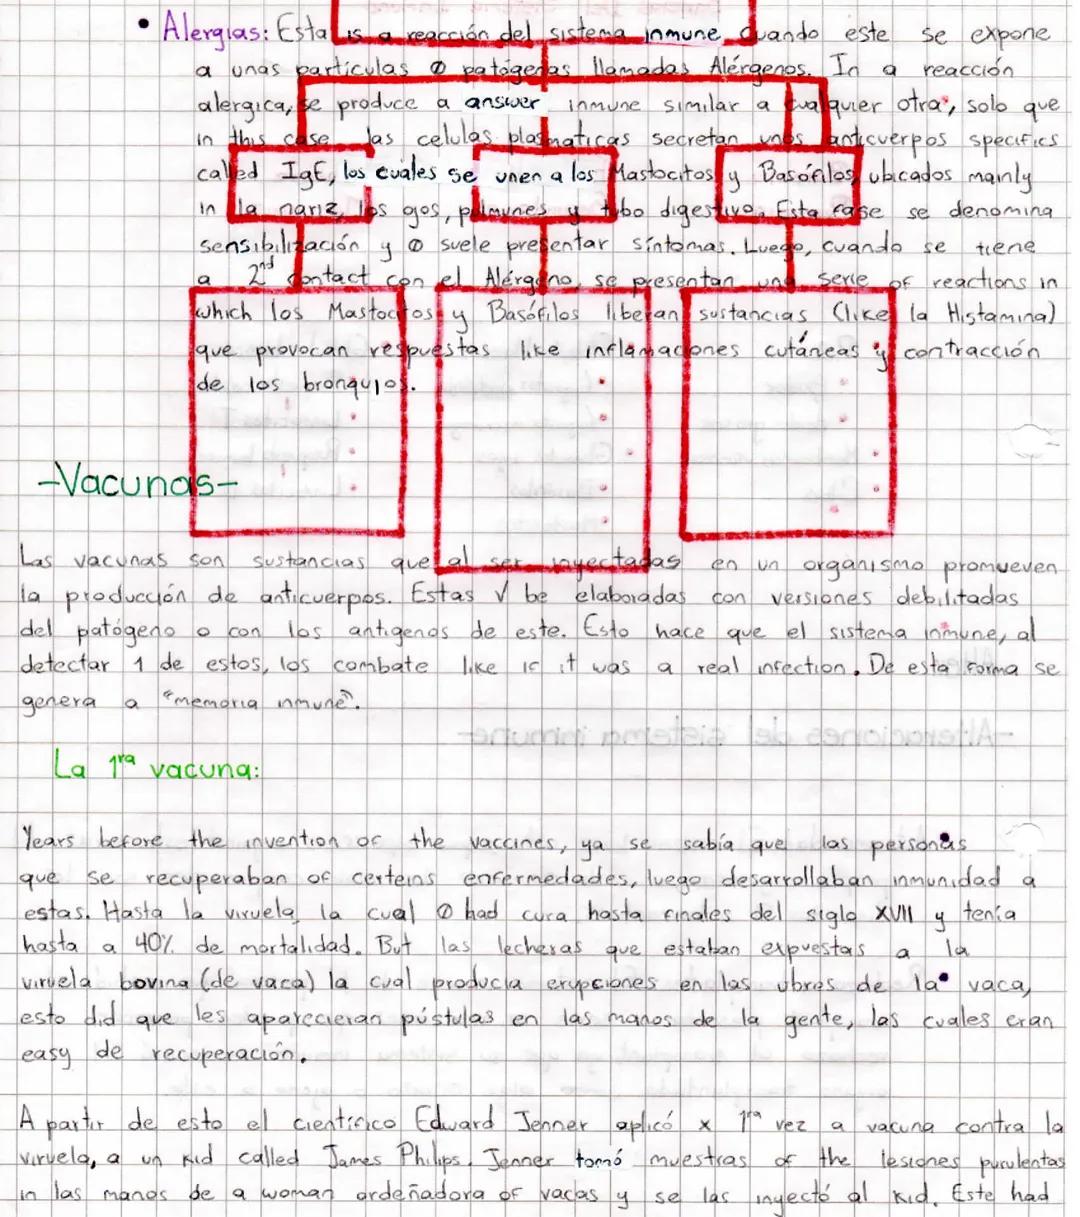 • Alergias: Esta is a reacción del sistema inmune cuando este se expone
a unas partículas Ø patógenas llamadas Alérgenos. In a reacción
alergica, se produce a answer inmune similar a cualquier otra, solo que
in this case las celulas plasmaticas secretan unos anticuerpos specifics
called IgE, los cuales se unen a los Mastocitos y Basófilos, ubicados mainly
in la nariz, los ojos, pulmunes y tubo digestivo. Esta fase se denomina
sensibilización y Ø suele presentar síntomas. Luego, cuando se tiene
a 2nd contact con el Alérgeno, se presentan una serie of reactions in
which los Mastocitos y Basófilos liberan sustancias (like la Histamina)
que provocan respuestas like inflamaciones cutáneas y contracción
de los bronquios.
-Vacunas-
Las vacunas son sustancias que al ser inyectadas en un organismo promueven
la producción de anticuerpos. Estas √ be elaboradas con versiones debilitadas
del patógeno o con los antigenos de este. Esto hace que el sistema inmune, al
detectar 1 de estos, los combate like if it was a real infection. De esta forma se
genera a "memoria inmune".
La 1ra vacuna:
Years before the invention of the vaccines, ya se sabía que las personas
que se recuperaban of certeins enfermedades, luego desarrollaban inmunidad a
estas. Hasta la viruela la cual Ø had cura hasta finales del siglo XVII y tenía
hasta a 40% de mortalidad. But las lecheras que estaban expuestas a la
viruela bovina (de vaca) la cual producia erupciones en las ubres de la vaca,
esto did que les aparecieran pústulas en las manos de la gente, las cuales eran
easy de recuperación.
A partir de esto el científico Edward Jenner aplicó x 1ra vez a vacuna contra la
viruela, a un kid called James Philips. Jenner tomó muestras of the lesiones purulentas
in las manos de a woman ordeñadora of vacas y se las inyectó al kid. Este had